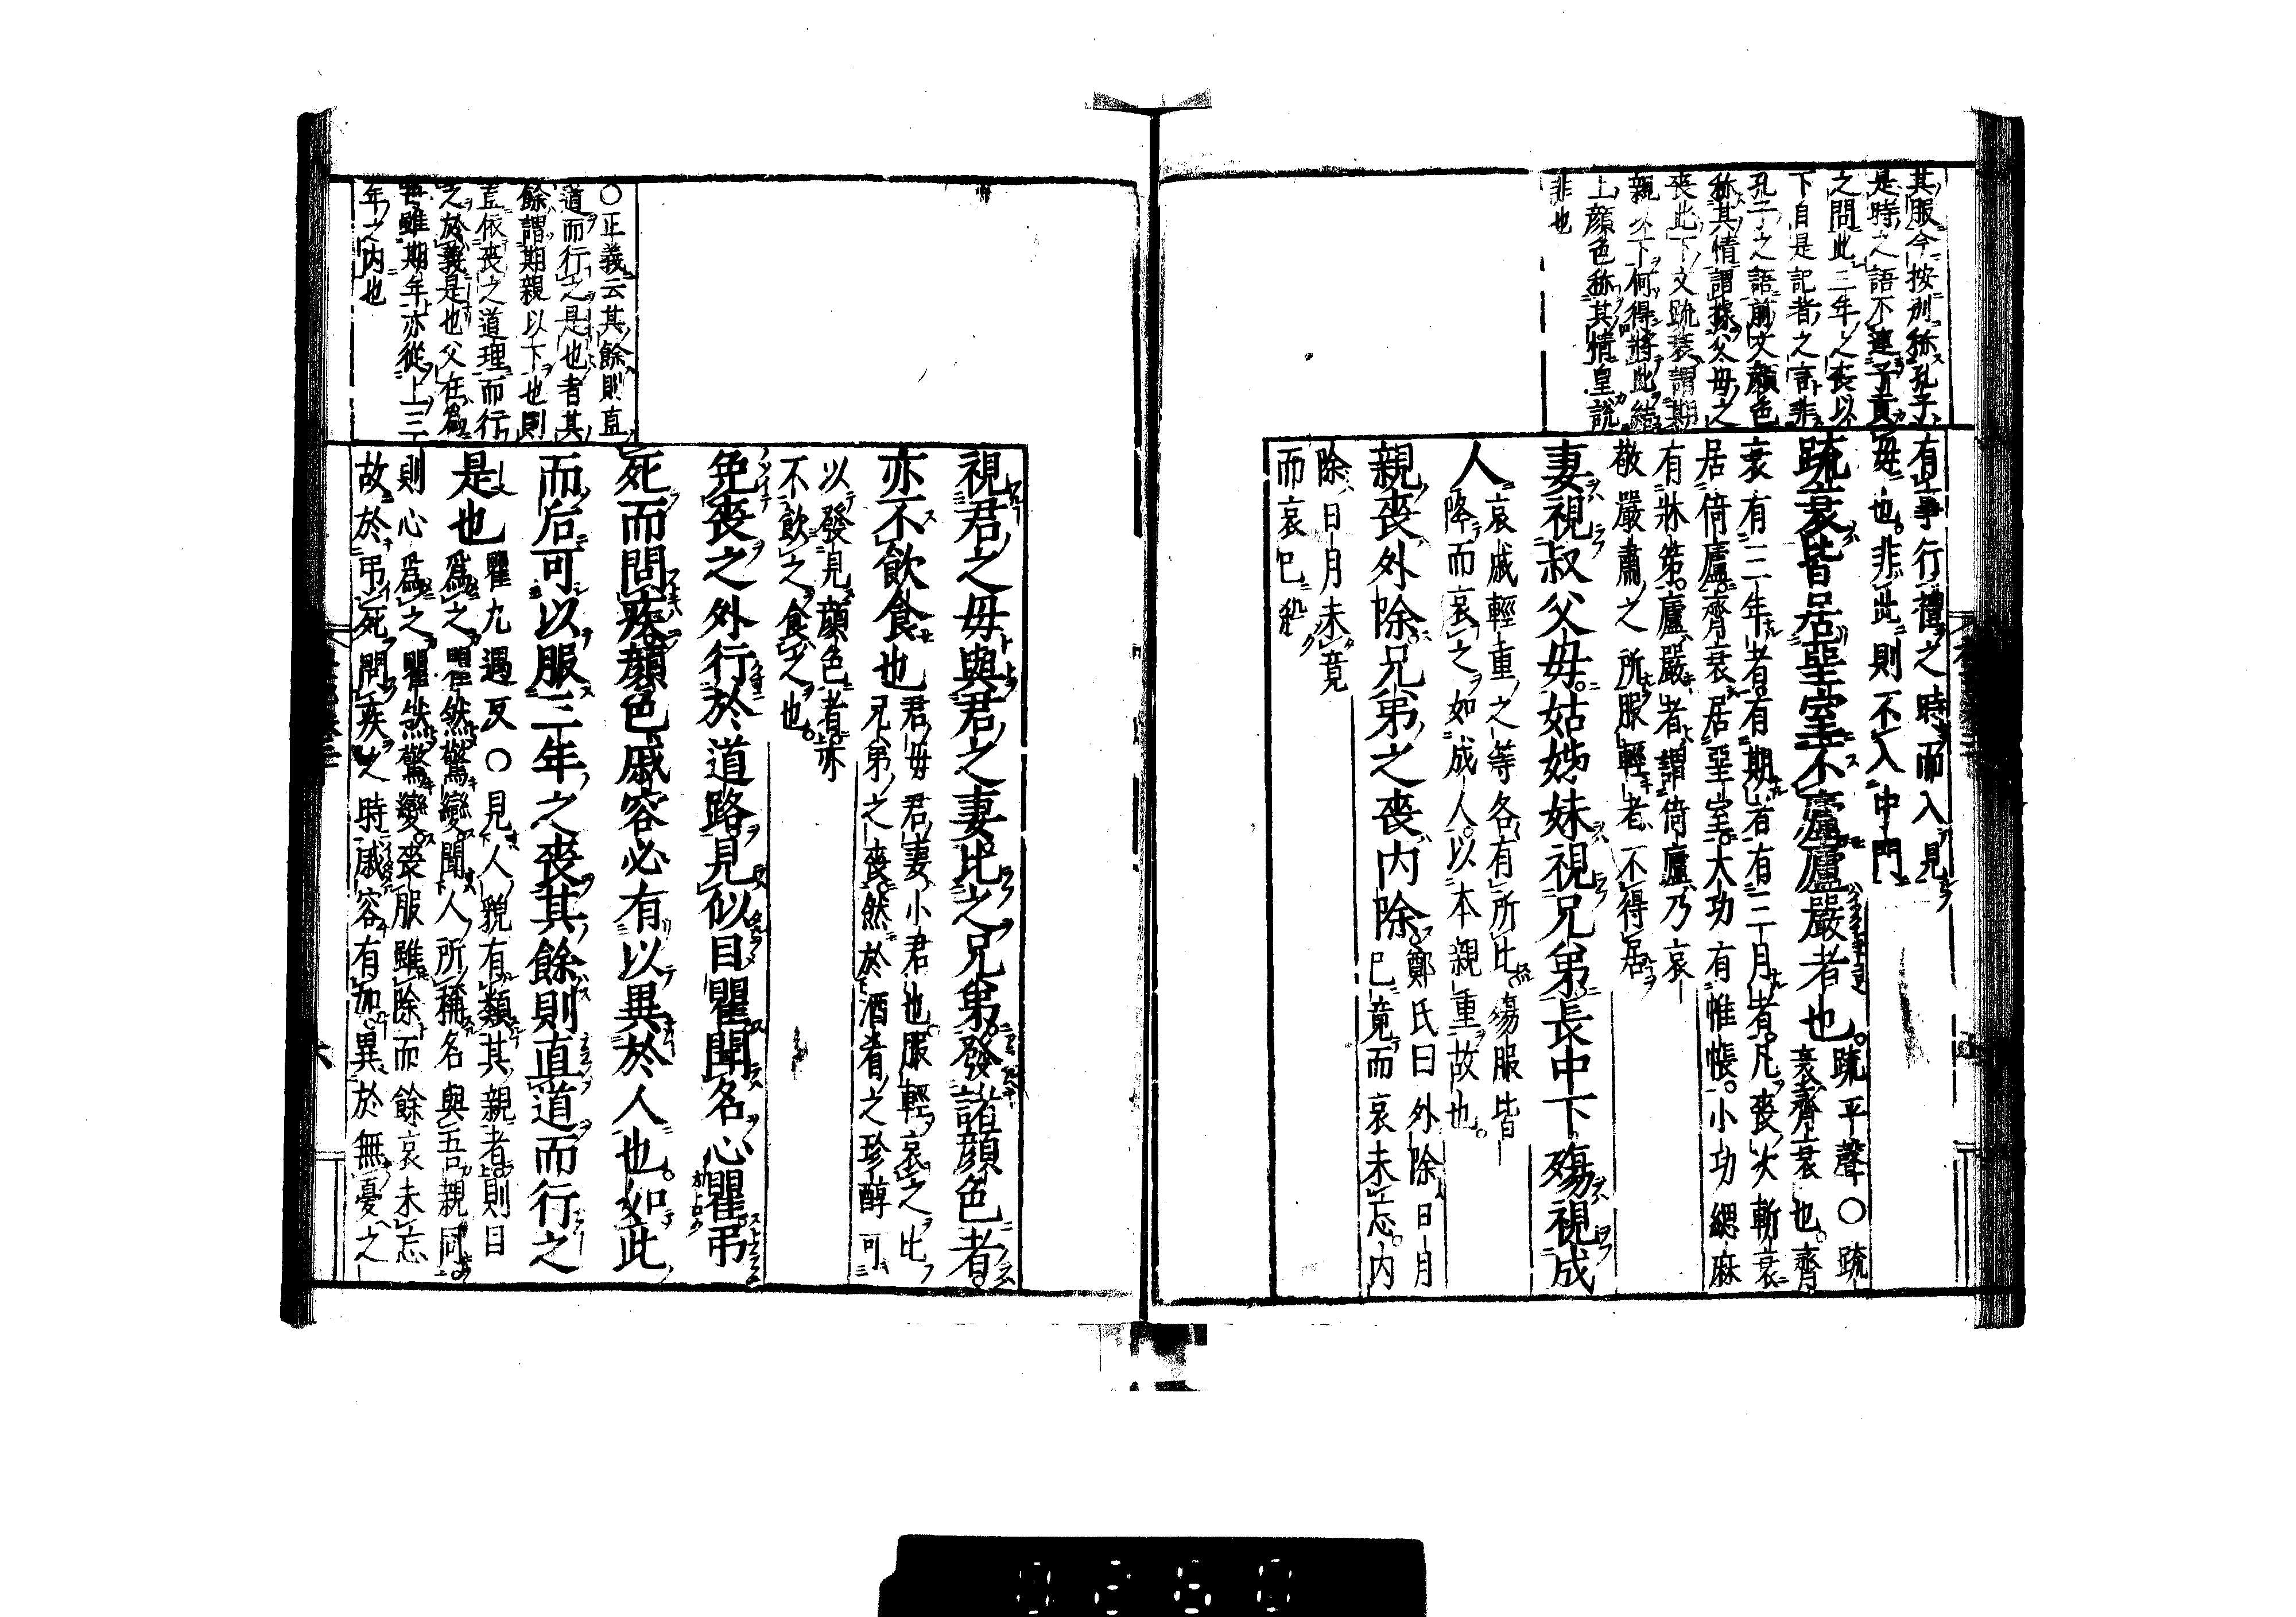 其服今按別称孔子
是時之語不連子貢
之問此三年之喪以
下自是記者之言非
孔子之語前文顏色
称其情謂據父母之
喪此下文疏衰謂期
親以下何得將此結
上顏色称其情皇説
非也
有事行禮之時而入見
母也。非此則不入中門
疏衰皆居堊室不廬廬嚴者也。疏平聲○疏
衰齊衰也。齊
衰有三年者。有期者有三月者。凡喪次斬衰
居倚廬。齊衰居堊室。大功有帷帳。小功緦麻
有牀笫。廬嚴者謂倚廬乃哀
敬嚴肅之所服輕者不得居
妻視叔父母。姑姊妹視兄弟長中下殤視成
人哀戚輕重之等各有所比殤服皆
降而哀之如成人。以本親重故也。
親喪外除。兄弟之喪内除。鄭氏曰外除日月
已竟而哀未忘。内
除日月未竟
而哀已殺
視君之母與君之妻。比之兄弟。發諸顏色者。
亦不飲食也君母君妻小君也。服輕哀之比
兄弟之喪。然於酒肴之珍醇可
以發見顏色者。亦
不飲之食之也。
免喪之外行於道路。見似目瞿聞名心瞿弔
死而問疾顏色戚容必有以異於人也。如此
而后可以服三年之喪其餘則直道而行之
是也瞿九遇反○見人貌有類其親者。則目
爲之瞿然驚變。聞人所稱名與吾親同。
則心爲之瞿然驚變。喪服雖除而餘哀未忘
故於弔死問疾之時戚容有加。異於無憂之
○正義云其餘則直
道而行之是也者其
餘謂期親以下也則
直依喪之道理而行
之於義是也父在爲
母雖期年亦從上三
年之内也
0260